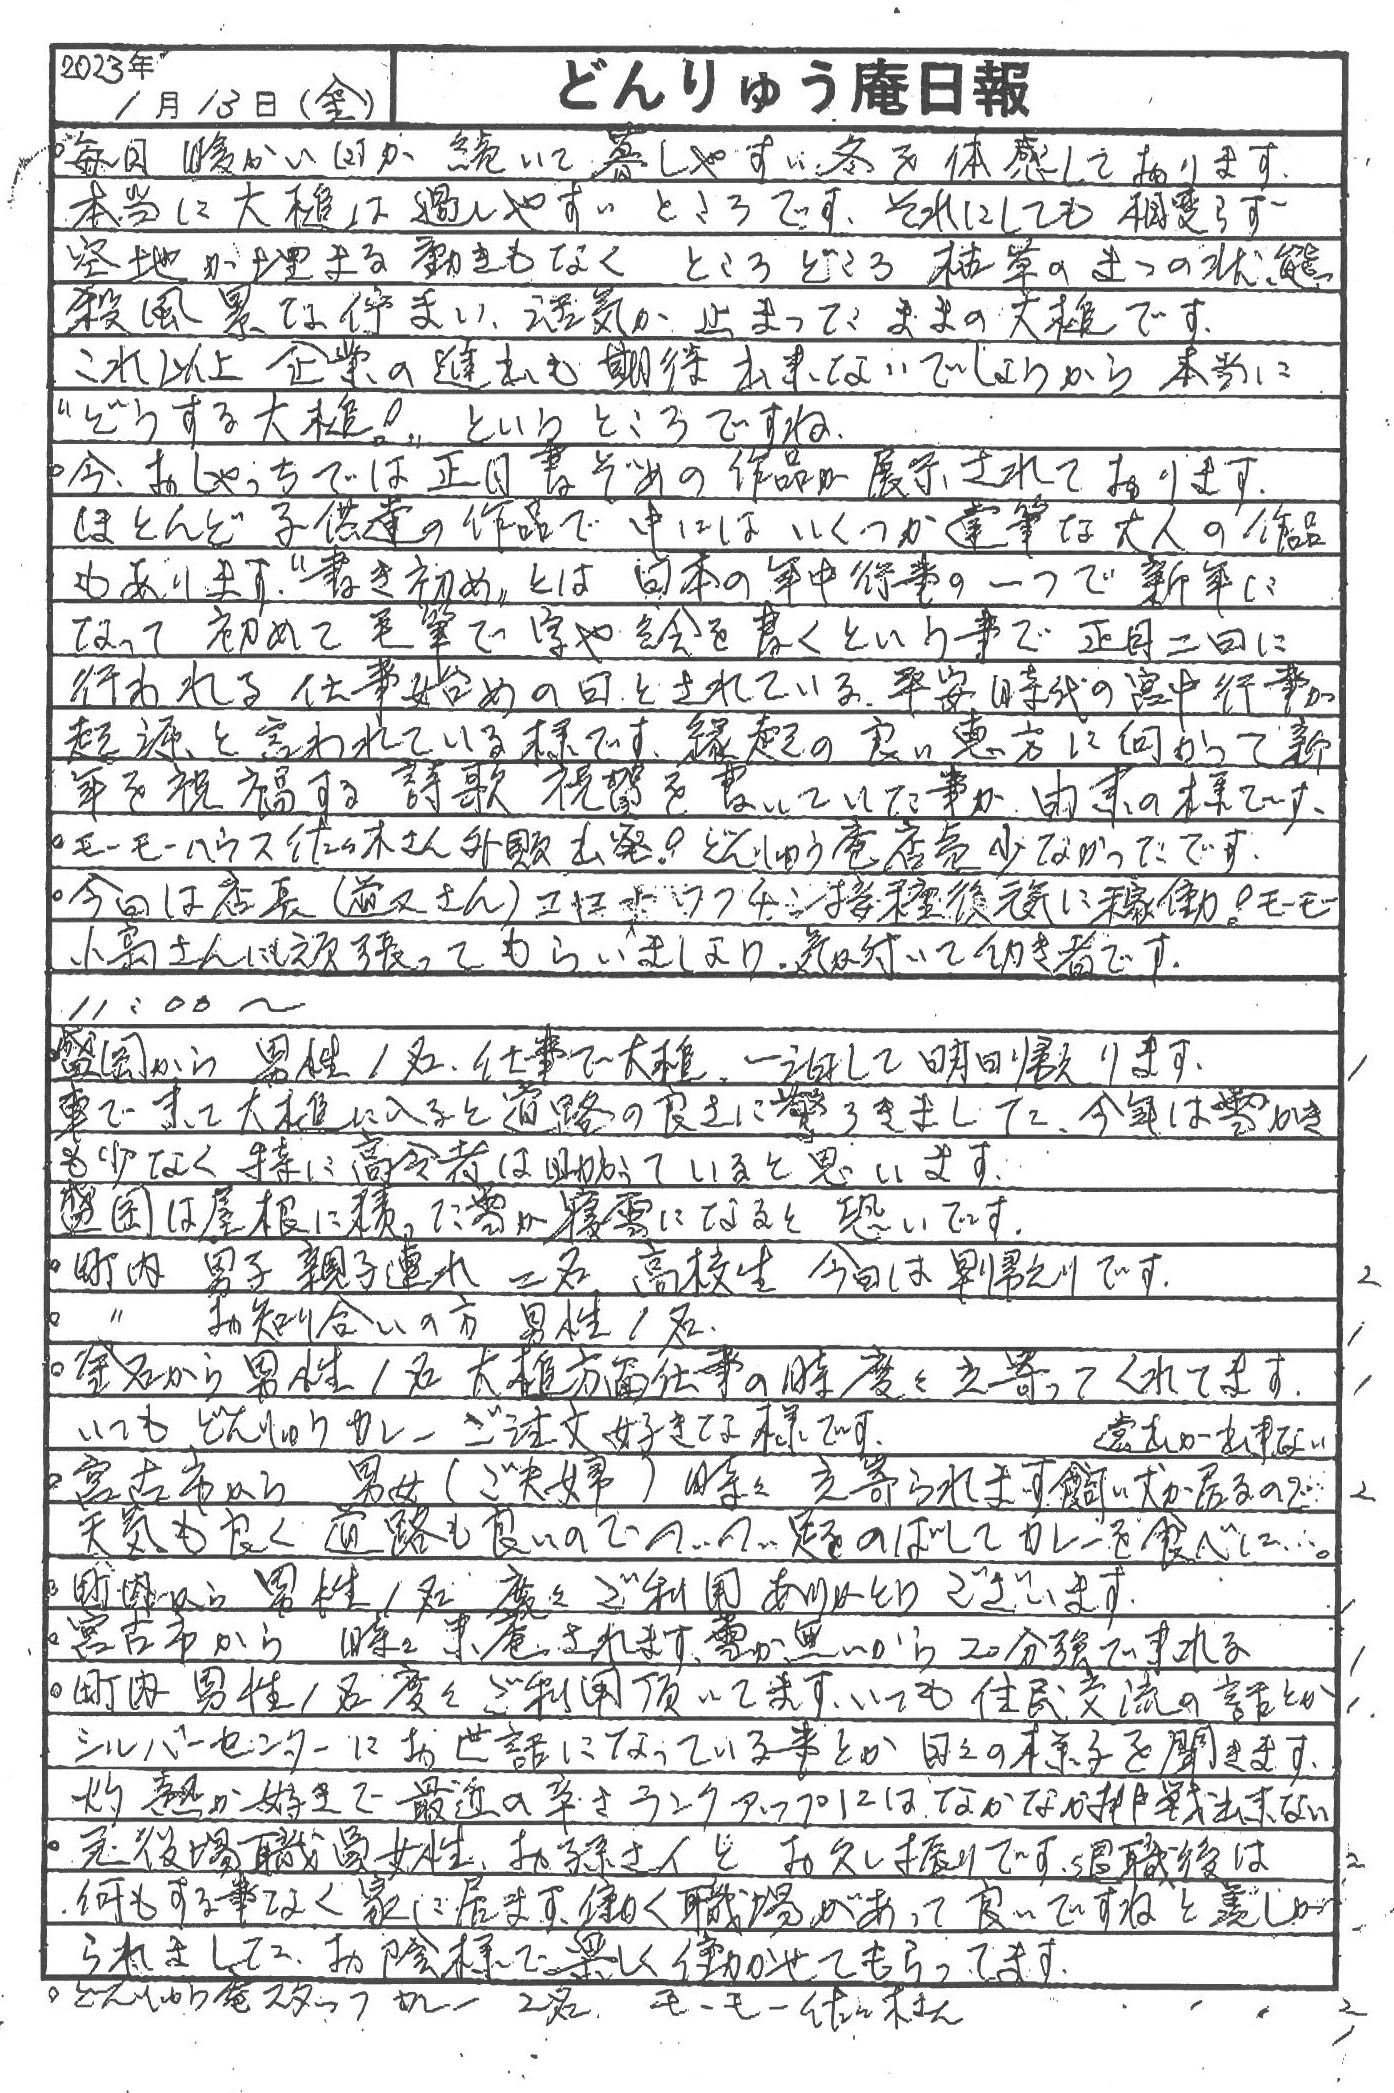 2023年
1月13日(金)
どんりゅう庵日報
○毎日 暖かい日が 続いて 暮しやすい冬を 体感しております.
本当に 大槌は 過しやすい ところです. それにしても 相変らず
空地が埋まる 動きもなく ところどころ 枯草の まつの状態
殺風景な佇まい、活気が 止まったままの 大槌です.
これ以上 企業の進出も 期待 出来ないでしょうから 本当に
“どうする大槌!„ というところですね.
○今、おしゃっちでは 正月書ぞめの 作品が 展示されて おります.
ほとんど 子供達の作品で 中には いくつか 達筆な大人の 作品
もあります.“書き初め„とは 日本の年中行事の一つで 新年に
なって 初めて 毛筆で 字や絵を 書くという事で 正月二日に
行われる 仕事始めの日とされている. 平安時代の宮中行事が
起源と言われている様です. 縁起の良い恵方に向かって新
年を祝福する 詩歌 祝賀を書いていた事が 由来の様です、
○モーモーハウス 佐々木さん 外販出発!どんりゅう庵店売少なかったです.
○今日は店長 ワクチン接種後元気に稼働!モーモー
小高さんにも頑張って もらいましょう. 気が付いて 働き者です.
11:00〜
○盛岡から 男性1名、仕事で大槌、一泊して 明日帰えります. 1
車で来て 大槌に入ると 道路の良さに 驚ろきました、今年は雪かき
も少なく 特に高令者は助かっていると思います.
盛岡は屋根に積った雪が 寝雪になると 恐いです.
○町内 男子 親子連れ 二名 高校生 今日は 早帰えりです. 2
○ 〃 お知り合いの方 男性1名. 1
○釜石から 男性1名 大槌方面仕事の時 度々 立寄ってくれてます. 1
いつも どんりゅうカレー ご注文 好きな様です. 遠出が出来ない
○宮古市から 男女(ご夫婦) 時々 立寄られます 飼い犬が居るので 2
天気も良く 道路も良いのでついつい 足をのばして カレーを食べに….
○町内から 男性1名 度々 ご利用 ありがとうございます. 1
○宮古市から 時々 来庵されます、雪が無いから 20分強で来れる 1
○町内 男性1名 度々 ご利用頂いてます、いつも 住民交流の話とか 1
シルバーセンターに お世話になっている事とか 日々の様子を聞きます.
灼熱が好きで 最近の辛さランクアップには なかなか挑戦出来ない
○元役場職員女性、お孫さんと お久し振りです、退職後は 2
何もする事なく 家に居ます、働く職場があって 良いですねと羨しが
られました、お陰様で楽しく 働かせてもらってます.
○どんりゅう庵スタッフ カレー 2名. モーモー佐々木さん 2
1